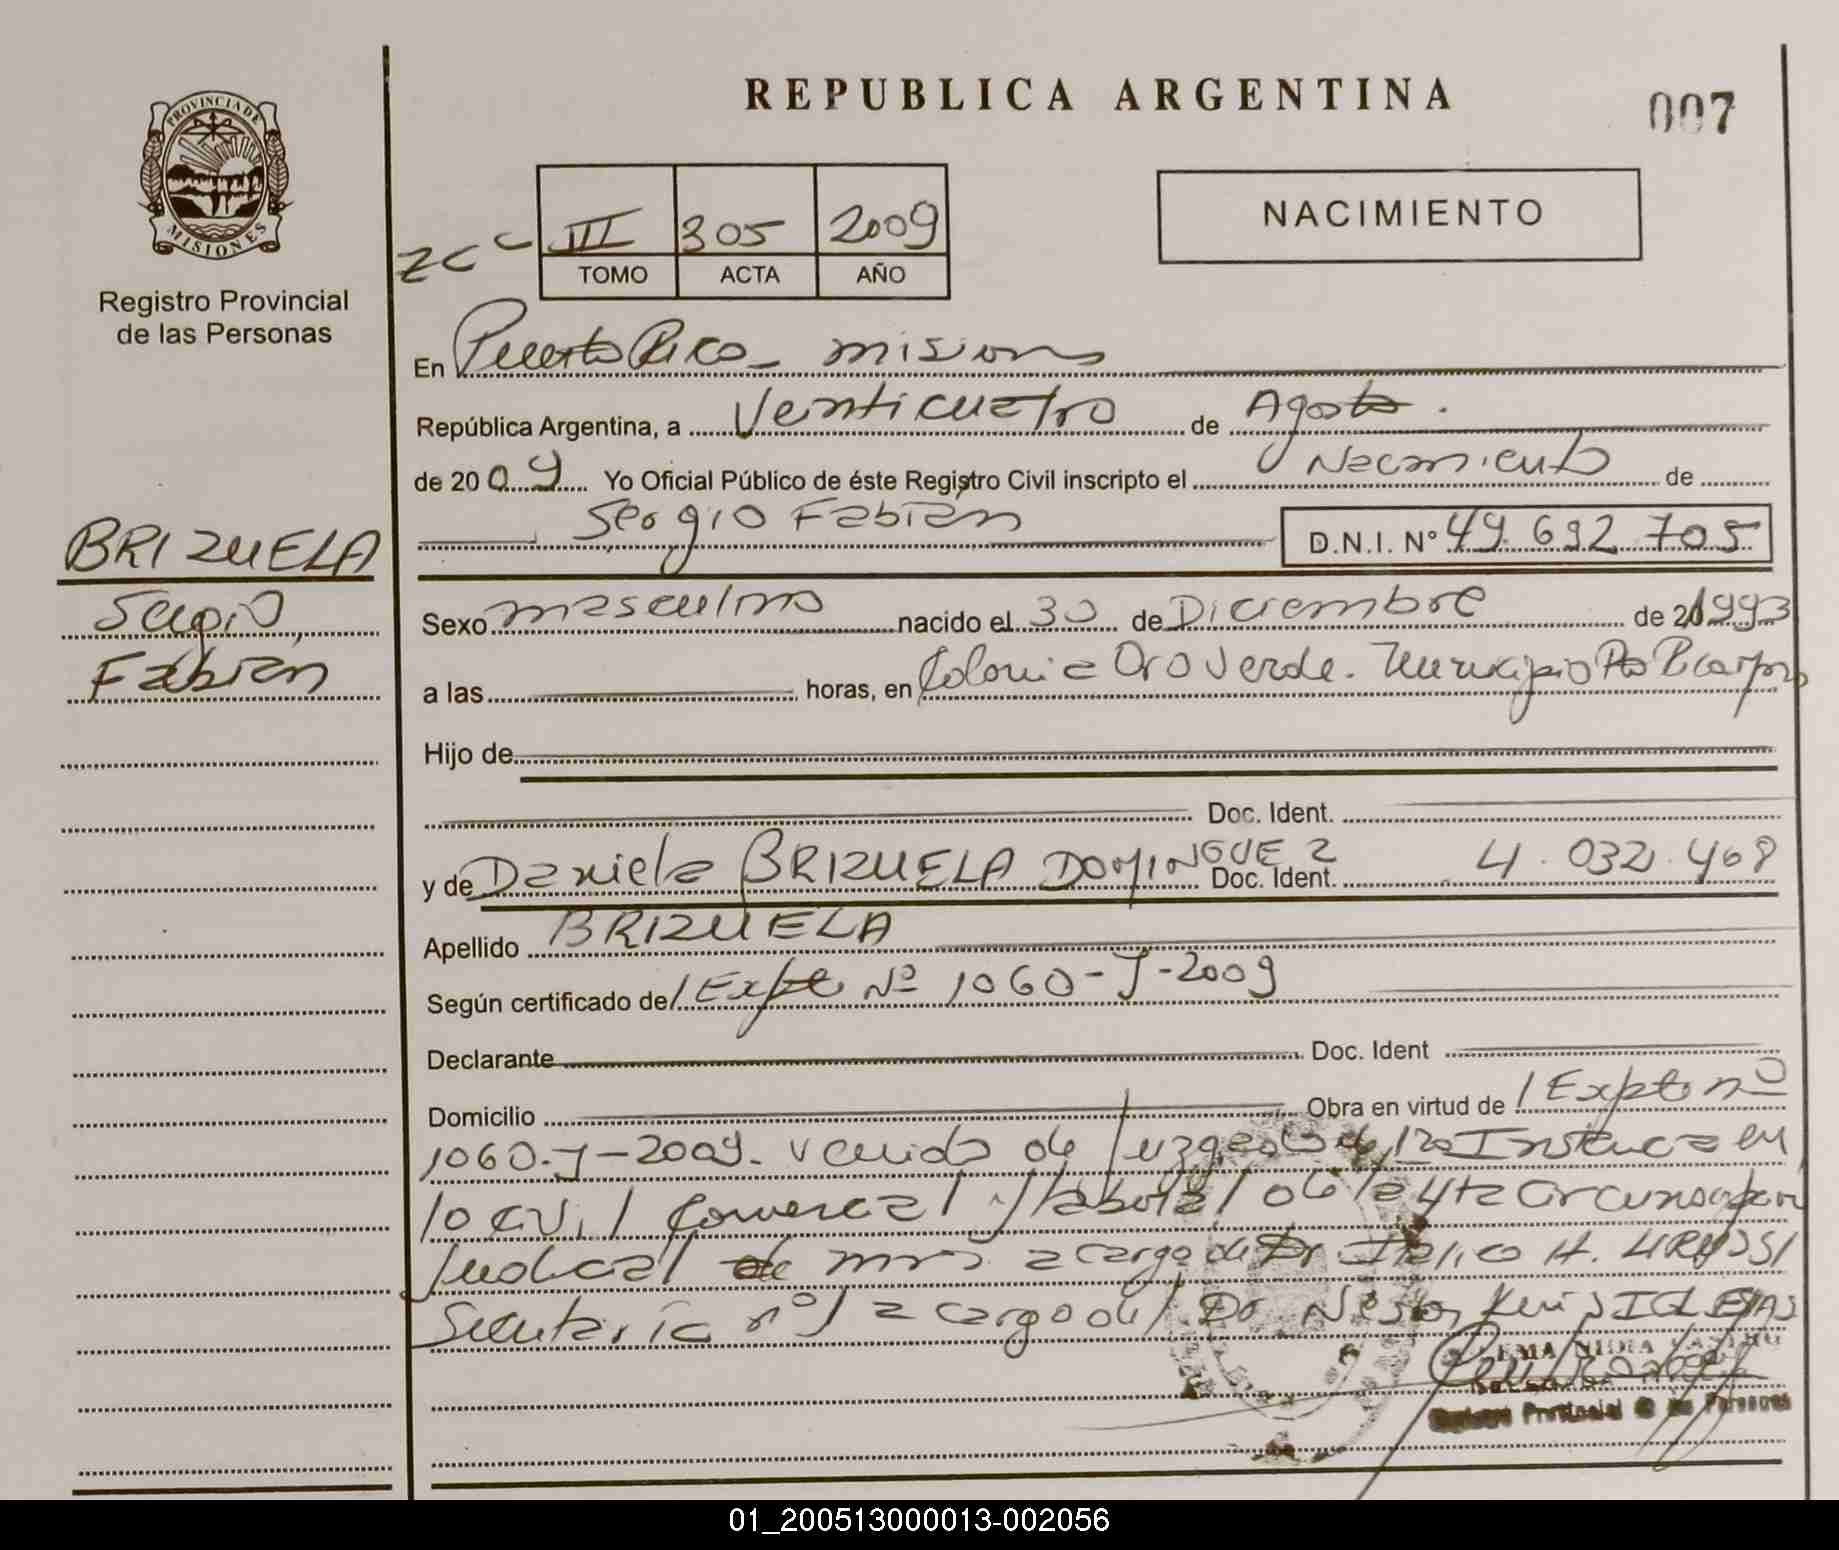 REPUBLICA ARGENTINA
007
PROVINCIA DE
MISIONES
Registro Provincial
de las Personas
NACIMIENTO
III 305 2009
TOMO ACTA AÑO
En Puerto Rico - misiones
República Argentina, a Veinticuatro de Agosto.
de 2009 Yo Oficial Público de éste Registro Civil inscripto el Nacimiento de
Sergio Fabian D.N.I. Nº 49.692.705
BRIZUELA
Sergio
Fabian
Sexo masculino nacido el 30 de Diciembre de 1993
a las horas, en Colonia Oro Verde. Municipio Pto
Hijo de
Doc. Ident.
y de Daniela BRIZUELA DOMINGUEZ Doc. Ident. 4.032.468
Apellido BRIZUELA
Según certificado de Expte Nº 1060-J-2009
Declarante Doc. Ident
Domicilio Obra en virtud de Expte nº
1060-J-2009. venido de Juzgado de 1ra Instancia en
lo Civil Comercial y laboral de la 4ta Circunscripcion
Judicial de mnes a cargo de Dr Italico H.
Secretaria nº 1 a cargo de Dr Nestor IGLESIAS
Registro Provincial de las Personas
01_200513000013-002056